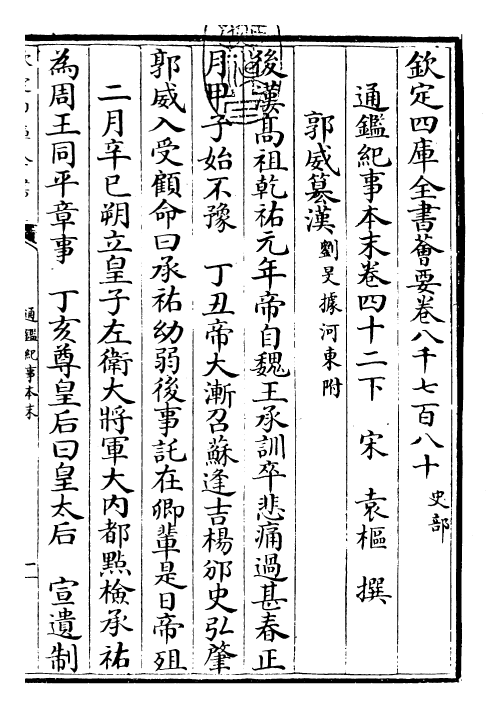 欽定四庫全書薈要卷八千七百八十 史部
通鑑紀事本末卷四十二下 宋 袁樞 撰
郭威簒漢 劉旻據河東附
後漢髙祖乾祐元年帝自魏王承訓卒悲痛過甚春正
月甲子始不豫 丁丑帝大漸召蘇逢吉楊邠史弘肇
郭威入受顧命曰承祐幼弱後事託在卿輩是日帝殂
二月辛巳朔立皇子左衛大將軍大内都㸃檢承祐
為周王同平章事 丁亥尊皇后曰皇太后 宣遺制
通鑑紀事本末